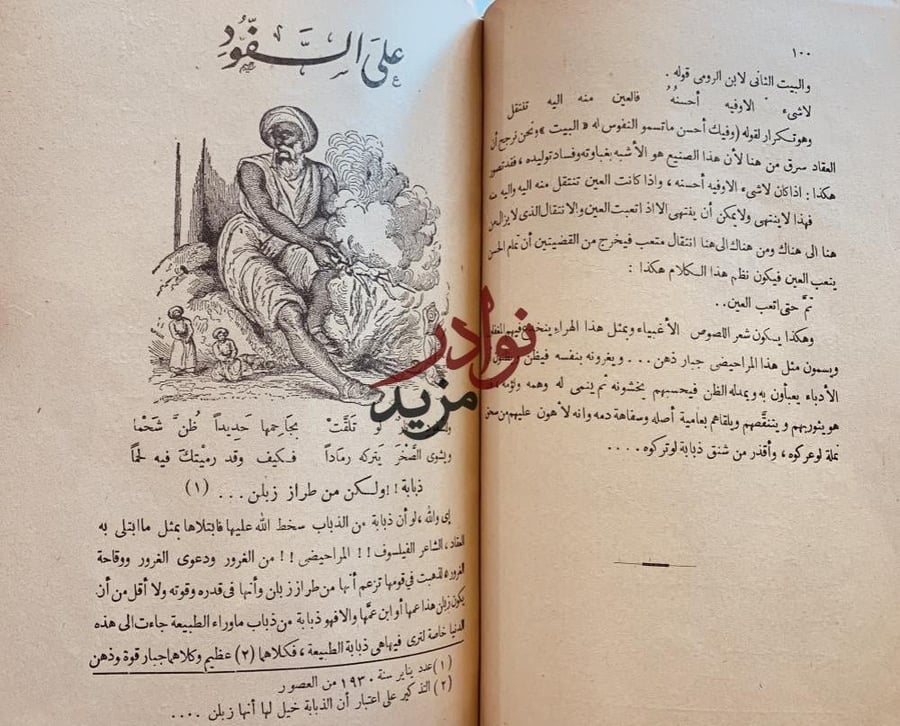 ١٠٠
والبيت الثانى لابن الرومى قوله .
لاشىء الاوفيه أحسنهُ فالعين منه اليه تنتقل
وهو تكرار لقوله (وفيك أحسن ما تسمو النفوس له «البيت» ونحن نرجح أن
العقاد سرق من هنا لأن هذا الصنيع هو الأشبه بغباوته وفساد توليده ، فقد تصور
هكذا : اذا كان لاشىء الاوفيه أحسنه ، واذا كانت العين تنتقل منه اليه واليه منه
فهذا لاينتهى ولايمكن أن ينتهى الا اذ اتعبت العين والانتقال الذى لا يزال من
هنا الى هناك ومن هناك الى هنا انتقال متعب فيخرج من القضيتين أن تمام الحسن
يتعب العين فيكون نظم هذا الكلام هكذا :
تمَّ حتى اتعب العين..
وهكذا يكون شعر اللصوص الأغبياء وبمثل هذا الهراء ينخدع فيهم
ويسمون مثل هذا المراحيضى جبار ذهن . . . ويغرونه بنفسه فيظن
الأدباء يعبأون به ويمدله الظن فيحسبهم يخشونه ثم ينمى له وهمه ولؤمه
هو يثوربهم ويتنقَّصهم ويلقاهم بعامية أصله وسفاهة دمه وانه لأهون عليهم من سحق
نملة لوعركوه ، وأقذر من شنق ذبابة لوتركوه . . . .
على السَّفُّود
نوادر
مزيد
تلقَّتْ بجاحمها حديداً ظُنَّ شَحْما
ويشوى الصَّخْرَ يَتركه رمَاداً فكيف وقد رميْتكَ فيه لحمَا
ذبابة !! ولكن من طراز زبلن ... (١)
إى والله ، لو أن ذبابة من الذباب سخط الله عليها فابتلاها بمثل ما ابتلى به
العقاد ، الشاعر الفيلسوف !! المراحيضى !! من الغرور ودعوى الغرور ووقاحة
الغرور ، لذهبت فى قومها تزعم أنها من طراز زبلن وأنها فى قدره وقوته ولا أقل من أن
يكون زبلن هذا عمها أو ابن عمَّها والا فهو ذبابة من ذباب ماوراء الطبيعة جاءت الى هذه
الدنيا خاصة لترى فيها هى ذبابة الطبيعة ، فكلاهما (٢) عظيم وكلاهما جبار قوة وذهن
(١) عدد يناير سنة ١٩٣٠ من العصور
(٢) التذكير على اعتبار أن الذبابة خيل لها أنها زبلن ....